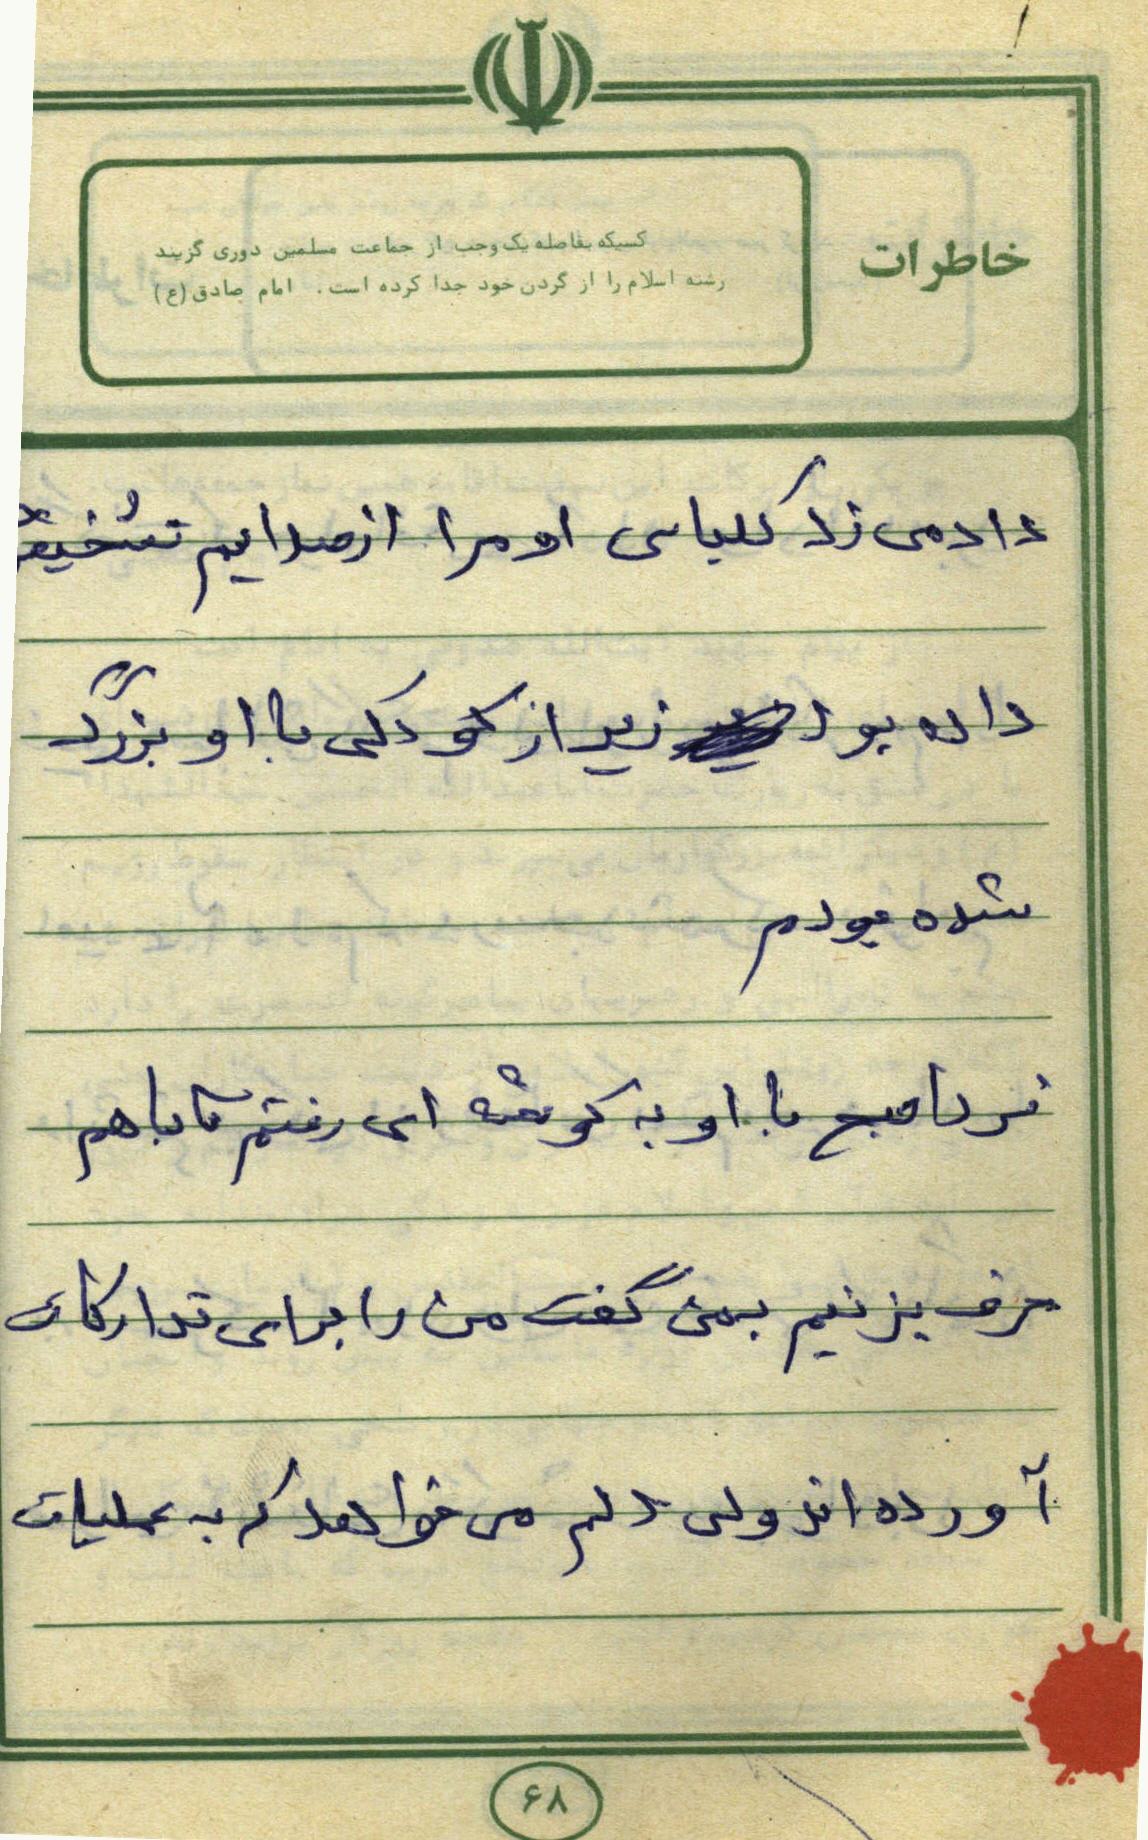 خاطرات
کسیکه بفاصله یک وجب از جماعت مسلمین دوری گزیند
رشته اسلام را از گردن خود جدا کرده است. امام صادق (ع)
داد می زد گلپاسی او مرا از صدایم تشخیص
داده بود زیرا از کودکی با او بزرگ
شده بودم
فردا صبح با او به گوشه ای رفتم تا با هم
حرف بزنیم بمن گفت من را برای تدارکات
آورده اند ولی دلم می خواهد که به عملیات
۶۸